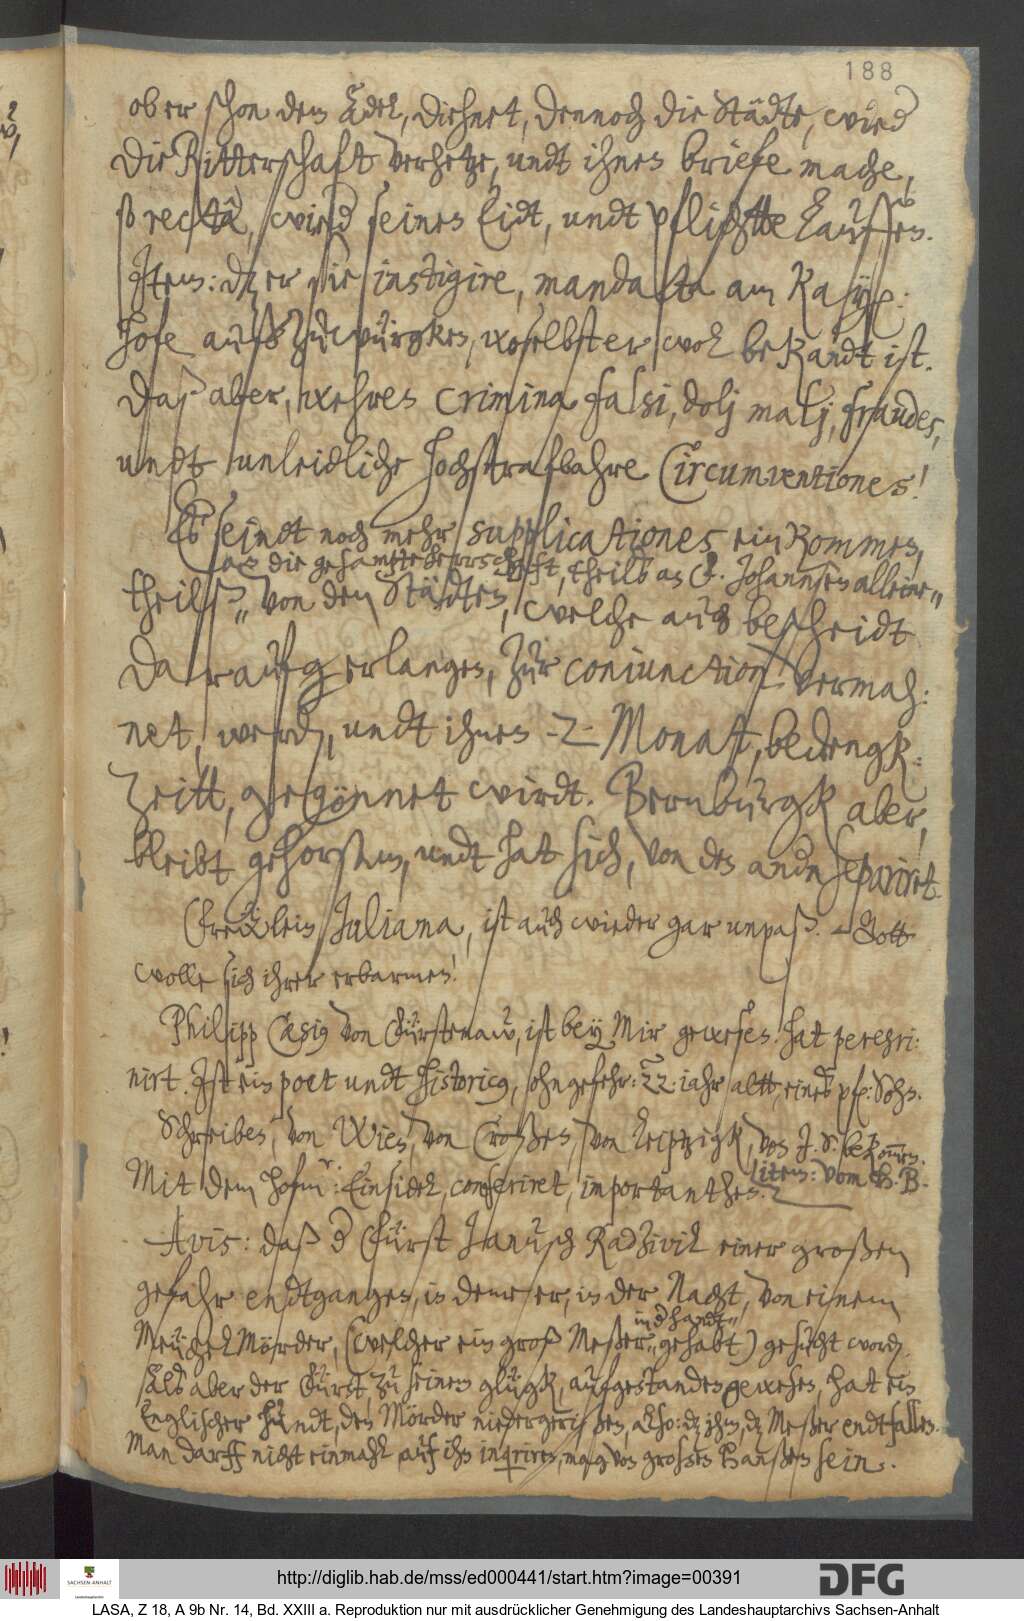 188
ob er schon dem Adel, diehnet, dennoch die Städte, wied
die Ritterschaft verhetze, undt ihnen briefe mache,
so rectâ, wied seinen Eidt, undt pflichtte lauffen.
Item: dz er sie instigire, mandata am Kayß:
hofe außzuwürgken, woselbsten er wol bekandt ist.
Daß aber, wehren crimina falsi, dolj malj, fraudes,
undt unleidliche hochstrafbahre Circumventiones!
Es seindt noch mehr supplicationes einkommen,
an die gesampte herrschaft, theilß an F. Johannsen alleine"
theilß" von den Städten, welche auch bescheidt
darauf erlangen, zur coniunction vermah:
net, werden, undt ihnen -2- Monat, bedengk:
Zeitt, gegönnet wirdt. Bernburgk aber,
bleibt gehorsam, undt hat sich, von den andern separiret.
Freulein Juliana, ist auch wieder gar unpaß. Gott
wolle sich ihrer erbarmen!
Philipp Cæsius von Fürstenaw, ist bey Mir gewesen. hat peregri:
nirt. Ist ein poet undt historicus, ohngefehr: 22: iahr altt, eines pf: Sohn.
Schreiben, von Wien, von Croßen, von Leiptzigk, von J. S. bekommen.
Item: vom H. B.
Mit dem hofmr: Einsidel, conferiret, importanthes.
Avis: daß der Fürst Janusch Radzivil einer großen
gefahr endtgangen, in deme er, in der Nacht, von einem
in der handt"
Meuchel Mörder, (welcher ein groß Meßer" gehabt) gesucht worden.
Alß aber der Fürst zu seinem glügk, aufgestanden gewesen, hat ein
Englischer hundt, den Mörder niedergerißen, also: dz ihm, dz Meßer endtfallen.
Man darff nicht einmahl auf ihn inquiriren, mag von großen Hanßen sein.
http://diglib.hab.de/mss/ed000441/start.htm?image=00391
SACHSEN-ANHALT
DFG
LASA, Z 18, A 9b Nr. 14, Bd. XXIII a. Reproduktion nur mit ausdrücklicher Genehmigung des Landeshauptarchivs Sachsen-Anhalt